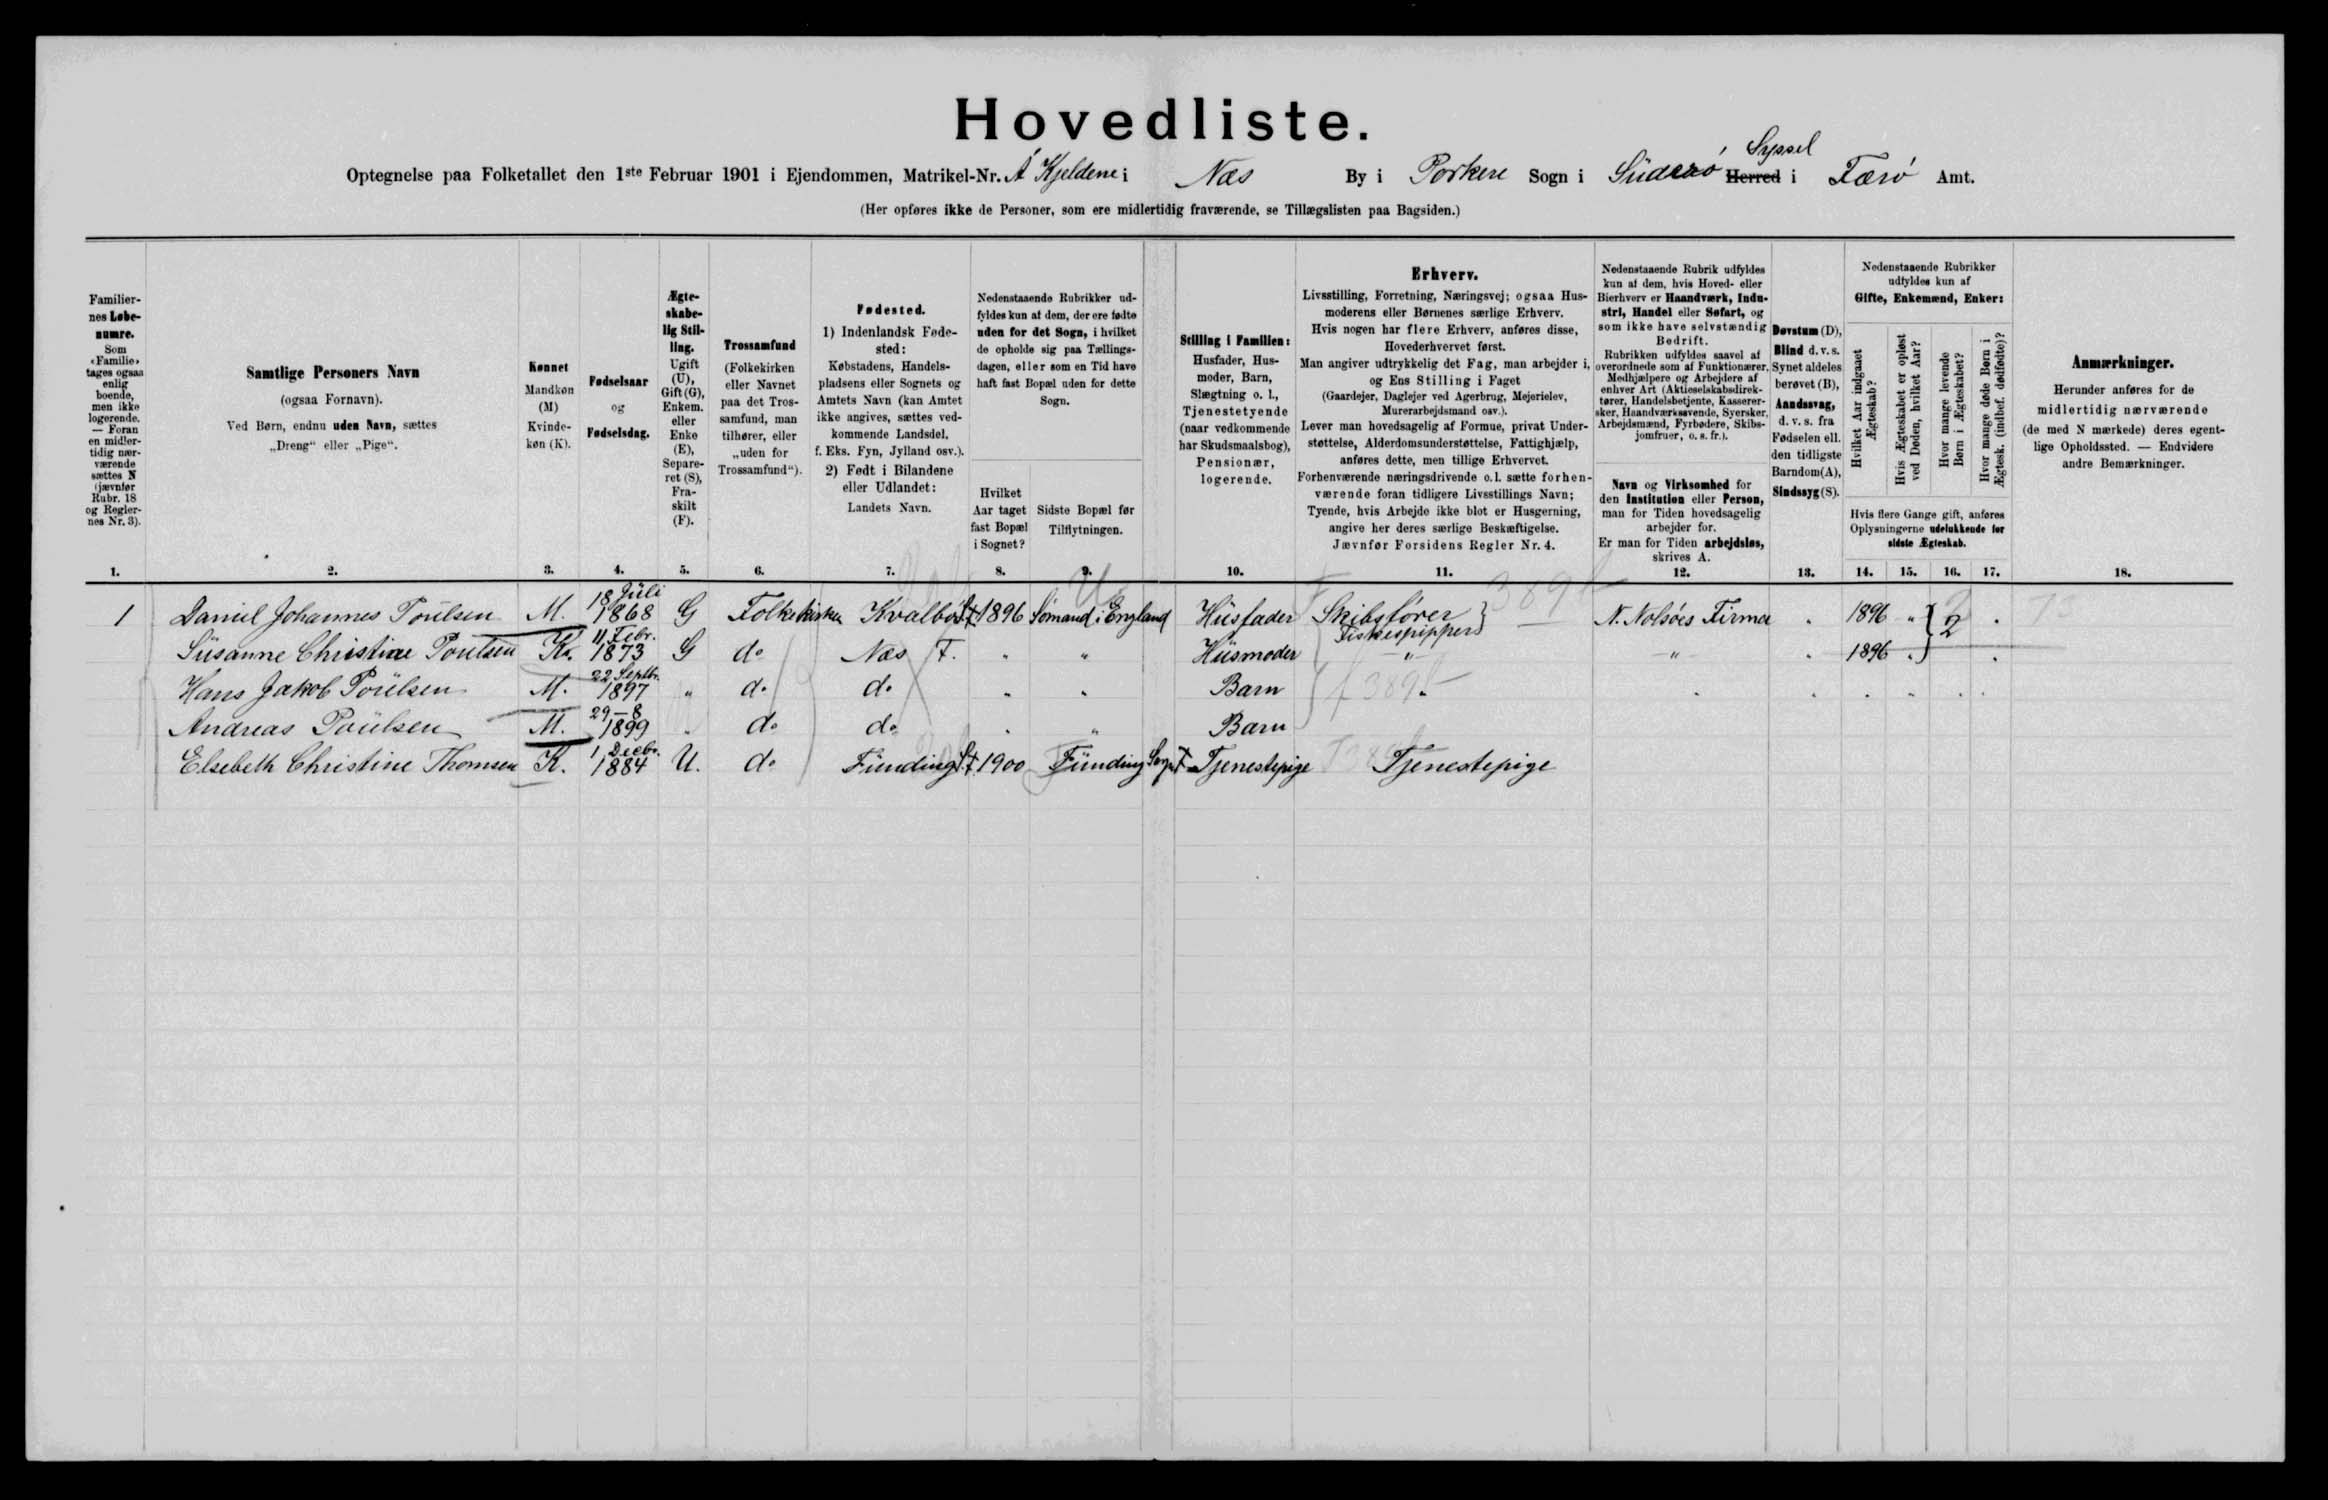 Hovedliste.
Optegnelse paa Folketallet den 1ste Februar 1901 i Ejendommen, Matrikel-Nr. Á Kjeldene i Næs By i Porkere Sogn i Süderø Syssel Herred i Færø Amt.
(Her opføres ikke de Personer, som ere midlertidig fraværende, se Tillægslisten paa Bagsiden.)
Familiernes Løbenumre. Som «Familie» tages ogsaa enlig boende, men ikke logerende. — Foran en midlertidig nærværende sættes N (jævnfør Rubr. 18 og Reglernes Nr. 3).
Samtlige Personers Navn
(ogsaa Fornavn).
Ved Børn, endnu uden Navn, sættes
„Dreng“ eller „Pige“.
Kønnet
Mandkøn (M)
Kvindekøn (K).
Fødselsaar
og
Fødselsdag.
Ægteskabelig Stilling.
Ugift (U), Gift (G), Enkem. eller Enke (E), Separeret (S), Fraskilt (F).
Trossamfund
(Folkekirken eller Navnet paa det Trossamfund, man tilhører, eller „uden for Trossamfund“).
Fødested.
1) Indenlandsk Fødested:
Købstadens, Handelspladsens eller Sognets og Amtets Navn (kan Amtet ikke angives, sættes vedkommende Landsdel, f. Eks. Fyn, Jylland osv.).
2) Født i Bilandene eller Udlandet:
Landets Navn.
Nedenstaaende Rubrikker udfyldes kun af dem, der ere fødte uden for det Sogn, i hvilket de opholde sig paa Tællingsdagen, eller som en Tid have haft fast Bopæl uden for dette Sogn.
Hvilket Aar taget fast Bopæl i Sognet?
Sidste Bopæl før Tilflytningen.
Stilling i Familien:
Husfader, Husmoder, Barn, Slægtning o. l., Tjenestetyende (naar vedkommende har Skudsmaalsbog), Pensionær, logerende.
Erhverv.
Livsstilling, Forretning, Næringsvej; ogsaa Husmoderens eller Børnenes særlige Erhverv.
Hvis nogen har flere Erhverv, anføres disse, Hovederhvervet først.
Man angiver udtrykkelig det Fag, man arbejder i, og Ens Stilling i Faget
(Gaardejer, Daglejer ved Agerbrug, Mejerielev, Murerarbejdsmand osv.).
Lever man hovedsagelig af Formue, privat Understøttelse, Alderdomsunderstøttelse, Fattighjælp, anføres dette, men tillige Erhvervet.
Forhenværende næringsdrivende o. l. sætte forhenværende foran tidligere Livsstillings Navn; Tyende, hvis Arbejde ikke blot er Husgerning, angive her deres særlige Beskæftigelse.
Jævnfør Forsidens Regler Nr. 4.
Nedenstaaende Rubrik udfyldes kun af dem, hvis Hoved- eller Bierhverv er Haandværk, Industri, Handel eller Søfart, og som ikke have selvstændig Bedrift.
Rubrikken udfyldes saavel af overordnede som af Funktionærer, Medhjælpere og Arbejdere af enhver Art (Aktieselskabsdirektører, Handelsbetjente, Kasserersker, Haandværkssvende, Syersker, Arbejdsmænd, Fyrbødere, Skibsjomfruer, o. s. fr.).
Navn og Virksomhed for den Institution eller Person, man for Tiden hovedsagelig arbejder for.
Er man for Tiden arbejdsløs, skrives A.
Døvstum (D), Blind d. v. s. Synet aldeles berøvet (B), Aandssvag, d. v. s. fra Fødselen ell. den tidligste Barndom (A), Sindssyg (S).
Nedenstaaende Rubrikker udfyldes kun af
Gifte, Enkemænd, Enker:
Hvilket Aar indgaaet Ægteskab?
Hvis Ægteskabet er opløst ved Døden, hvilket Aar?
Hvor mange levende Børn i Ægteskabet?
Hvor mange døde Børn i Ægtesk. (indbef. dødfødte)?
Hvis flere Gange gift, anføres Oplysningerne udelukkende for sidste Ægteskab.
Anmærkninger.
Herunder anføres for de midlertidig nærværende (de med N mærkede) deres egentlige Opholdssted. — Endvidere andre Bemærkninger.
1. 2. 3. 4. 5. 6. 7. 8. 9. 10. 11. 12. 13. 14. 15. 16. 17. 18.
1 Daniel Johannes Poülsen M. 18 Jüli 1868 G Folkekirken Kvalbø 1896 Sömand i England Hüsfader Skibsfører N. Nolsöes Firma 1896 " 2
Süsanne Christine Poulsen K. 11 Febr. 1873 G do Næs F. " " Hüsmoder " " 1896 "
Hans Jakob Poülsen M. 22 Septbr. 1897 " do do " " Barn "
Andreas Poülsen M. 29-8 1899 " do do " " Barn
Elsebeth Christine Thomsen K. 1 Decbr. 1884 U. do Fünding 1900 Fünding Tjenestepige Tjenestepige